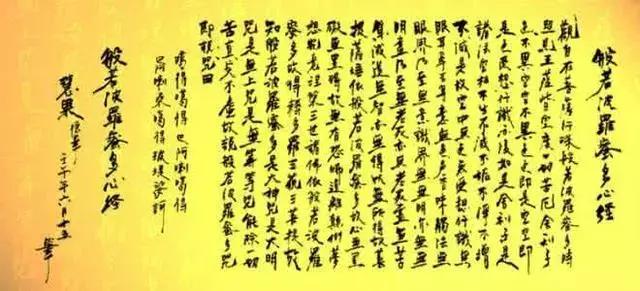 般若波羅蜜多心經
觀自在菩薩行深般若波羅蜜多時
照見五蘊皆空度一切苦厄舍利子
色不異空空不異色色即是空空即
是色受想行識亦復如是舍利子是
諸法空相不生不滅不垢不淨不增
不減是故空中無色無受想行識無
眼耳鼻舌身意無色聲香味觸法無
眼界乃至無意識界無無明亦無無
明盡乃至無老死亦無老死盡無苦
集滅道無智亦無得以無所得故菩
提薩埵依般若波羅蜜多故心無罣
礙無罣礙故無有恐怖遠離顛倒夢
想究竟涅槃三世諸佛依般若波羅
蜜多故得耨多羅三藐三菩提故
知般若波羅蜜多是大神咒是大明
咒是無上咒是無等等咒能除一切
苦真實不虛故說般若波羅蜜多咒
即說咒曰
得噶得巴阿喇噶得
阿喇桑噶得
般若波羅蜜多心經
碧果
壬午年六月十五